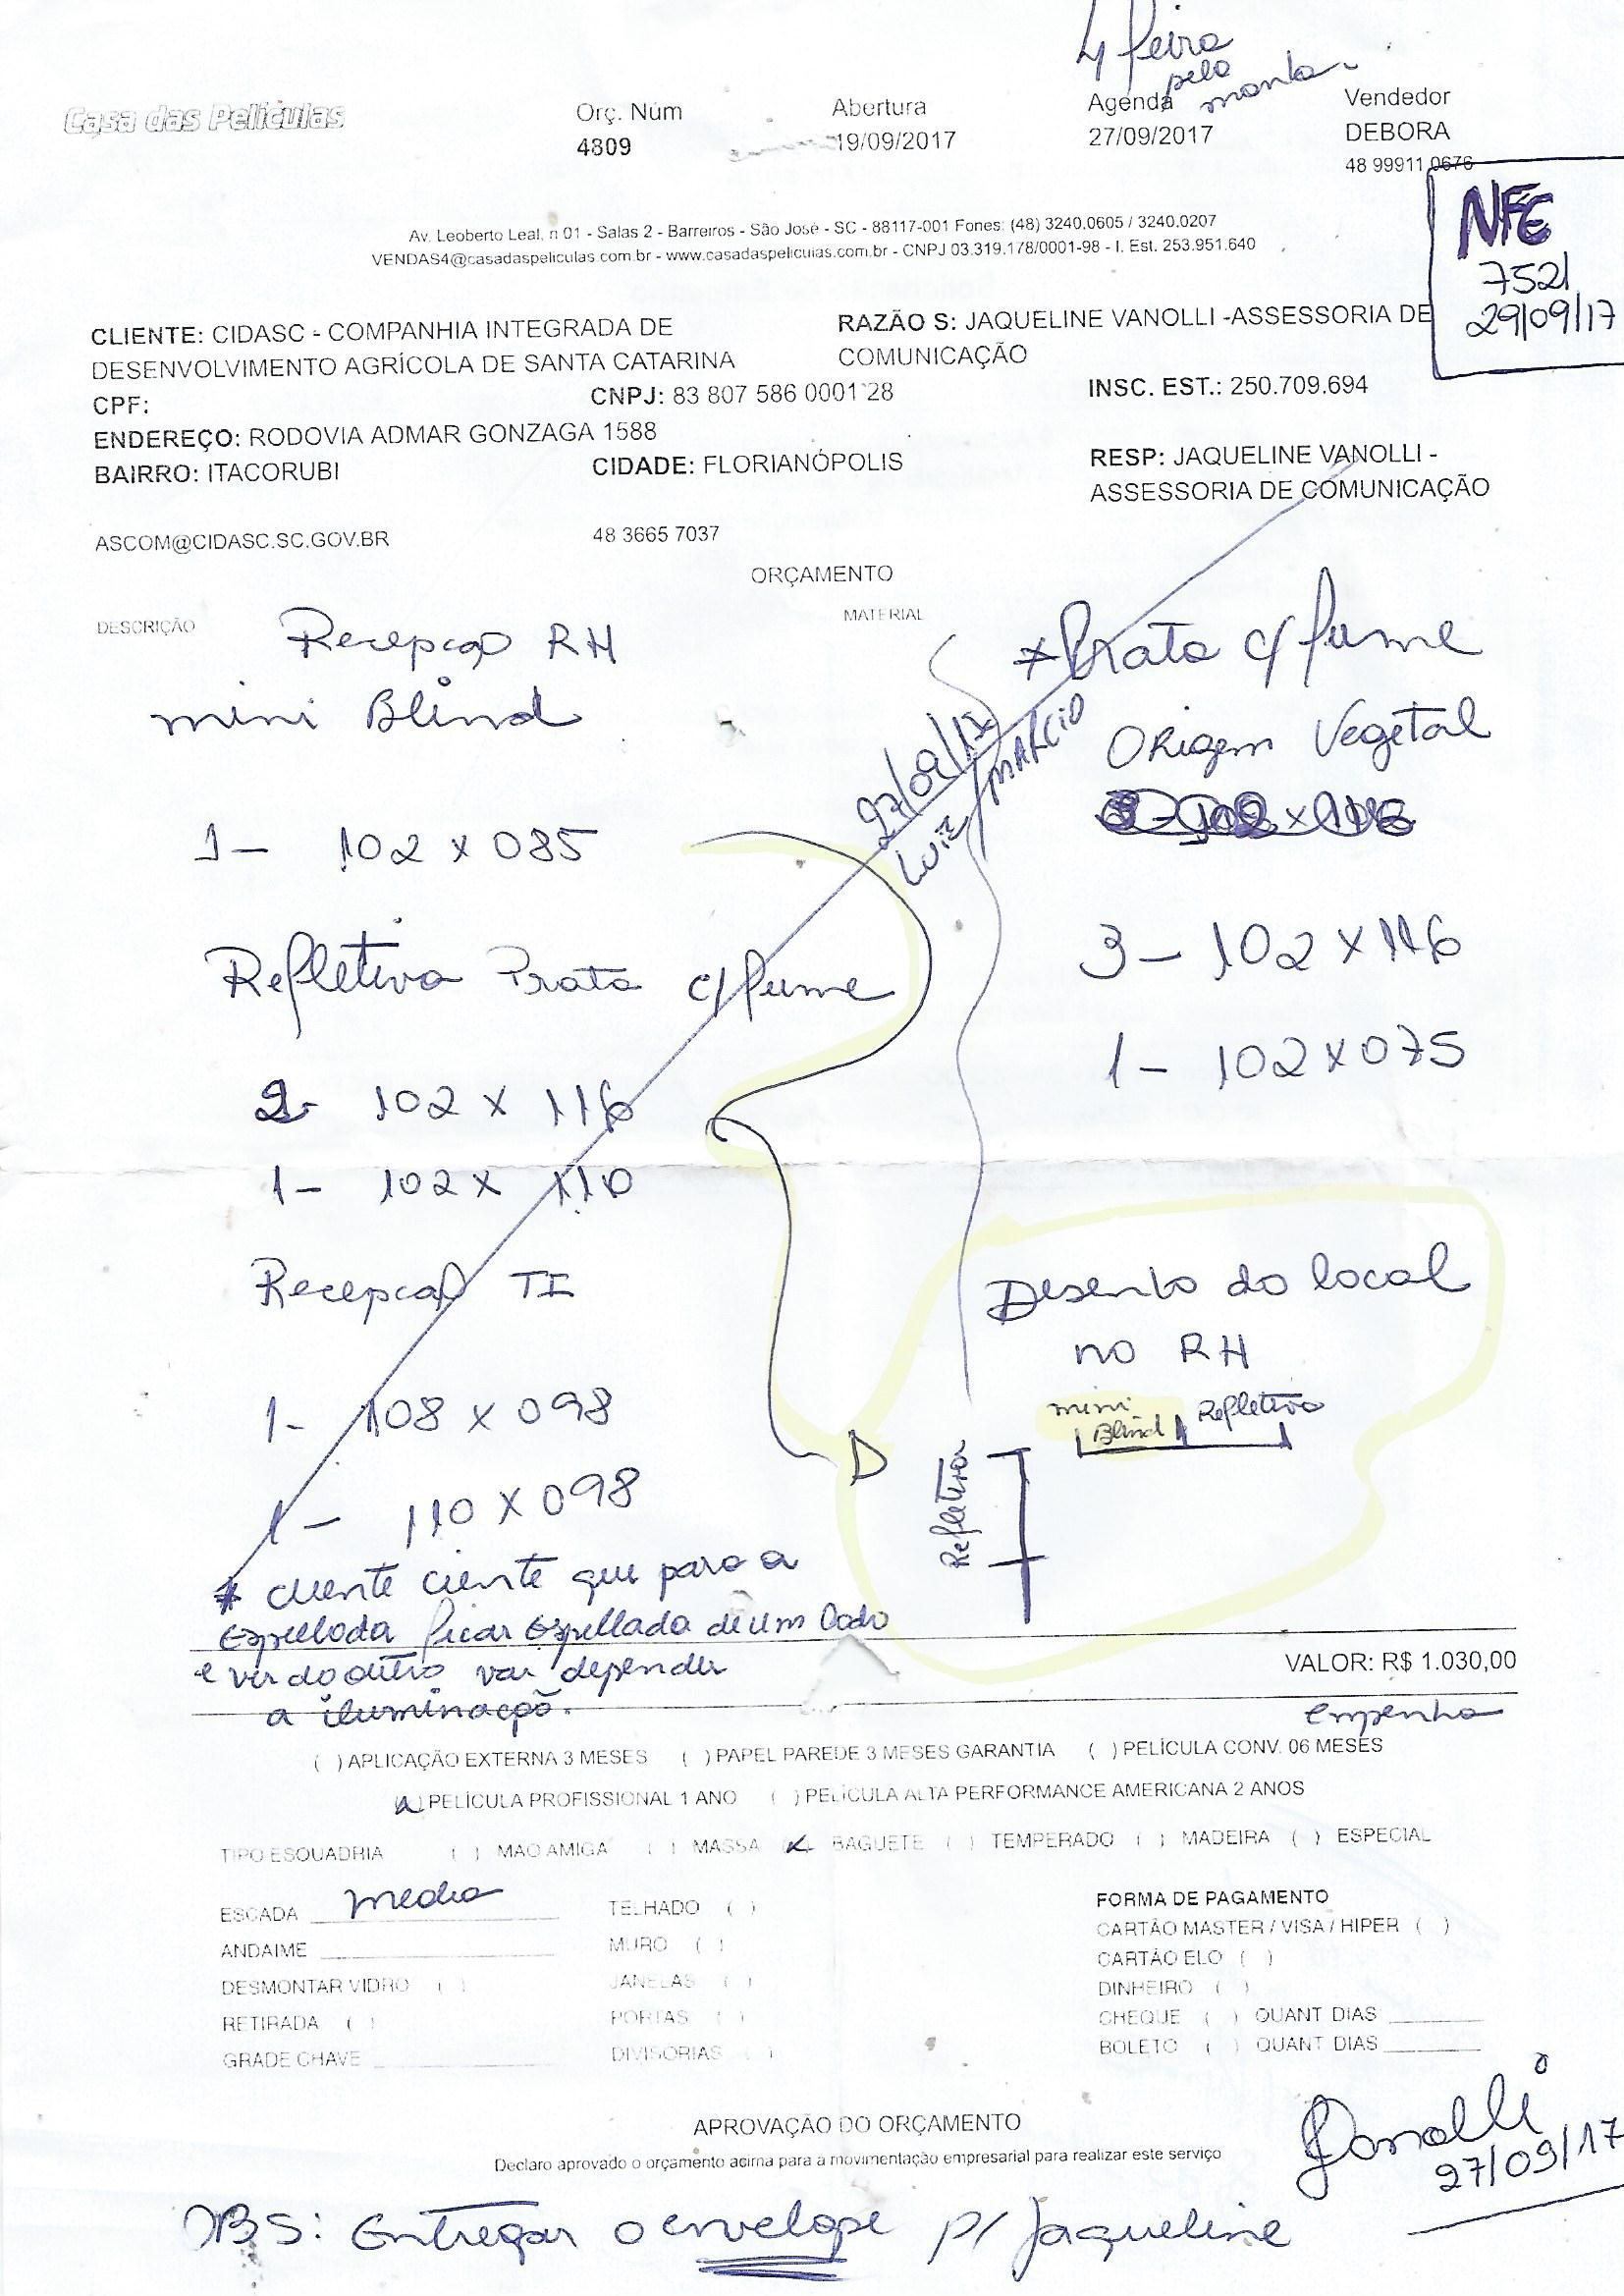 4 feira
pela
manha
Casa das Películas
Orç. Núm
4809
Abertura
19/09/2017
Agenda
27/09/2017
Vendedor
DEBORA
48 99911 0676
NFE
7521
29/09/17
Av. Leoberto Leal, n 01 - Salas 2 - Barreiros - São José - SC - 88117-001 Fones: (48) 3240.0605 / 3240.0207
VENDAS4@casadaspeliculas.com.br - www.casadaspeliculas.com.br - CNPJ 03.319.178/0001-98 - I. Est. 253.951.640
CLIENTE: CIDASC - COMPANHIA INTEGRADA DE
DESENVOLVIMENTO AGRÍCOLA DE SANTA CATARINA
RAZÃO S: JAQUELINE VANOLLI -ASSESSORIA DE
COMUNICAÇÃO
CPF:
CNPJ: 83 807 586 0001 28
INSC. EST.: 250.709.694
ENDEREÇO: RODOVIA ADMAR GONZAGA 1588
BAIRRO: ITACORUBI
CIDADE: FLORIANÓPOLIS
RESP: JAQUELINE VANOLLI -
ASSESSORIA DE COMUNICAÇÃO
ASCOM@CIDASC.SC.GOV.BR
48 3665 7037
ORÇAMENTO
DESCRIÇÃO
MATERIAL
Recepçao RH
mini Blind
1- 102 x 085
Refletiva Prata c/ fume
2- 102 x 116
1- 102 x 110
Recepcao TI
1- 108 x 098
1- 110 x 098
27/09/17
LUIZ / MARCIO
* Prata c/ fume
Origem Vegetal
3- 102 x 116
1- 102 x 075
Desenho do local
no RH
mini
Blind
Refletiva
Refletiva
* cliente ciente que para a
espelhada ficar espellada de um lado
e ver do outro vai depender
a iluminaçõ.
VALOR: R$ 1.030,00
empenho
( ) APLICAÇÃO EXTERNA 3 MESES ( ) PAPEL PAREDE 3 MESES GARANTIA ( ) PELÍCULA CONV. 06 MESES
(x) PELÍCULA PROFISSIONAL 1 ANO ( ) PELÍCULA ALTA PERFORMANCE AMERICANA 2 ANOS
TIPO ESQUADRIA ( ) MAO AMIGA ( ) MASSA (x) BAGUETE ( ) TEMPERADO ( ) MADEIRA ( ) ESPECIAL
ESCADA media
ANDAIME
DESMONTAR VIDRO ( )
RETIRADA ( )
GRADE CHAVE
TELHADO ( )
MURO ( )
JANELAS ( )
PORTAS ( )
DIVISORIAS ( )
FORMA DE PAGAMENTO
CARTÃO MASTER / VISA / HIPER ( )
CARTÃO ELO ( )
DINHEIRO ( )
CHEQUE ( ) QUANT DIAS
BOLETO ( ) QUANT DIAS
APROVAÇÃO DO ORÇAMENTO
Declaro aprovado o orçamento acima para a movimentação empresarial para realizar este serviço
27/09/17
OBS: Entregar o envelope p/ Jaqueline